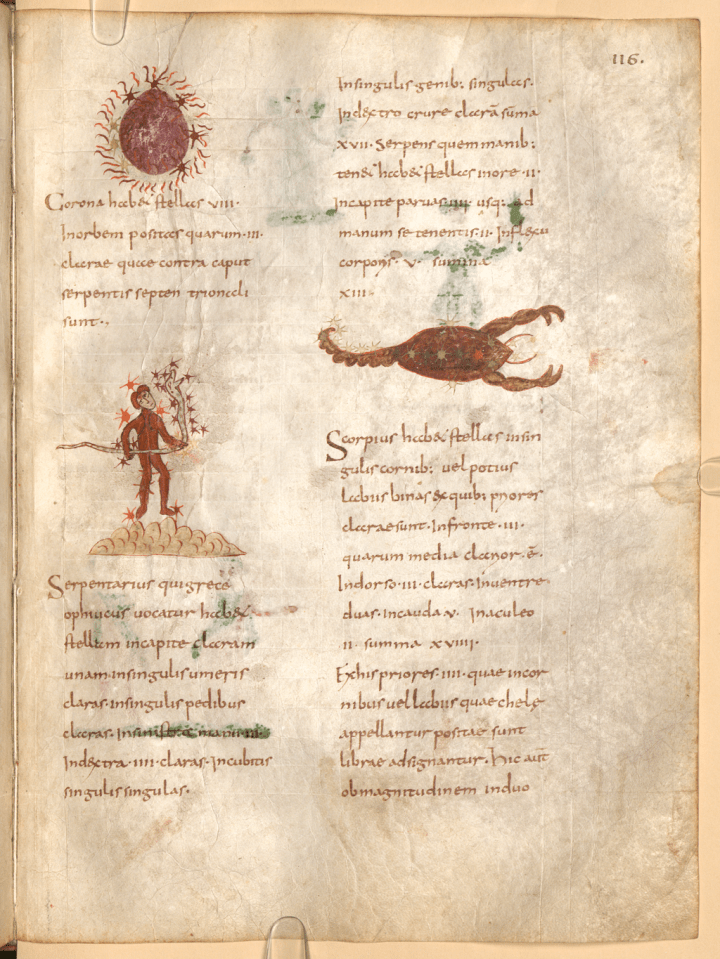 116.
Corona habet stellas viii·
Inorbem positas quarum·iii·
clarae quae contra caput
serpentis septen trionali
sunt·,
Serpentarius quigrece
ophiucus vocatur habet
stellam incapite claram
unam·insingulis umeris
claras·insingulis pedibus
claras·Insinistra manu·iii·
Indextra·iiii·claras·Incubitis
singulis singulas·
Insingulis genib: singulas·
Indextro crure clarā sūma
xvii·Serpens quem manib:
tenet habet stellas inore·ii·
Incapite parvas·iiii·usq: ad
manum se tenentis·ii·Inflexu
corporis·v· summa
xiii·
Scorpius habet stellas insin
gulis cornib: vel potius
labiis binas ex quib: priores
clarae sunt·Infronte·iii·
quarum media clarior·ē·
Indorso·iii·claras·Inventre·
duas·Incauda·v· Inaculeo
ii· summa xviiii·
Exhis priores·iiii·quae incor
nibus vel labiis quae chele
appellantur positae sunt
librae adsignantur·hic aut
ob magnitudinem induo